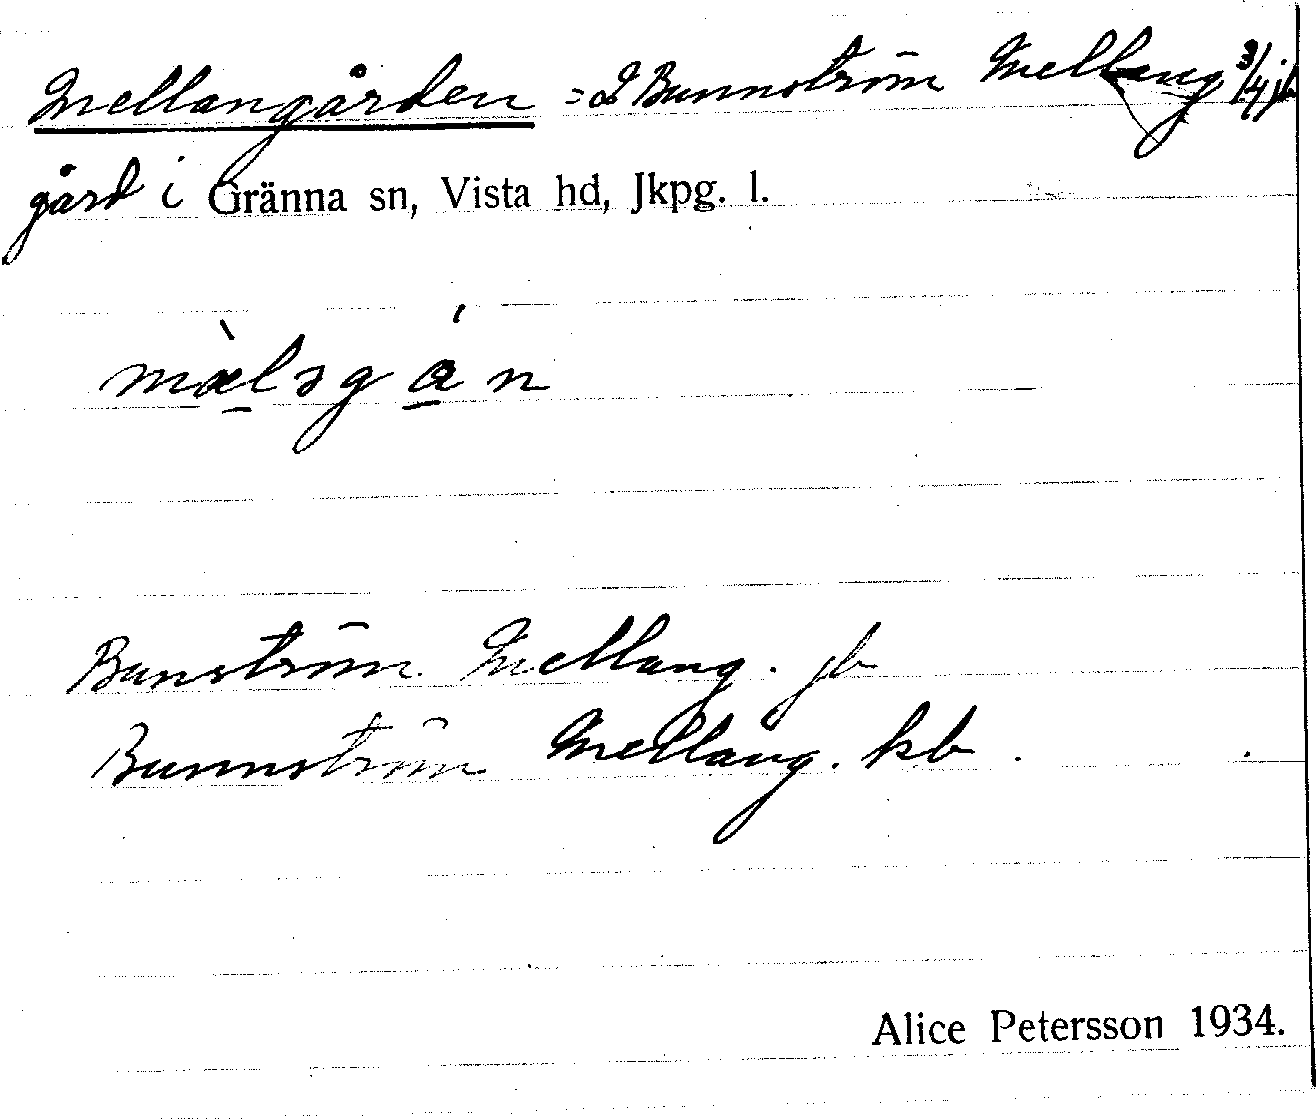 Mellangården = 2 Bunnström Mellang 3/4 jb
gård i Gränna sn, Vista hd, Jkpg. l.
mæ̀lǝgá̱n
Bunström Mellang. jb
Bunnström Mellang. kb.
Alice Petersson 1934.